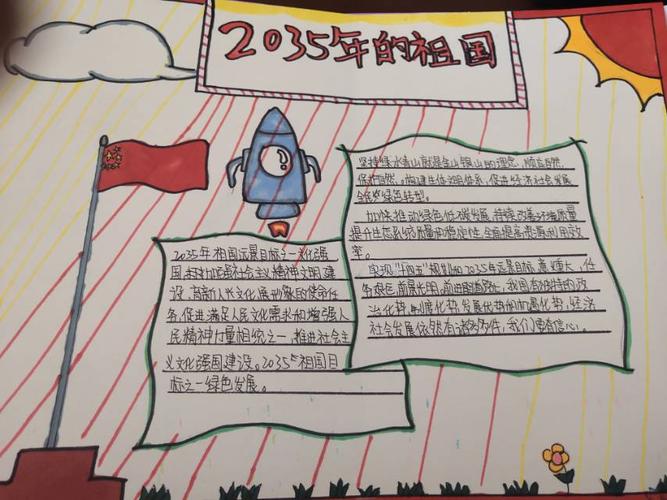 2035年的祖国
2035年祖国远景目标之一文化强
国,加强社会主义精神文明建
设,育新人兴文化展形象的使命任
务,促进满足人民文化需求和增强人
民精神力量相统之一,推进社会主
义文化强国建设。2035年祖国目
标之一绿色发展。
坚持绿水青山就是金山银山的理念,
保护自然。促进经济社会发展
绿色转型。
加快推动绿色低碳发展,持续改善环境质量
提升生态系统质量和稳定性,全面提高资源利用效
率。
实现"十四五"规划和2035年远景目标,意义重大,任
务艰巨,前景光明。我国有独特的政
治优势,制度优势,发展优势和机遇优势,经济
社会发展依然有诸多条件,我们更有信心。